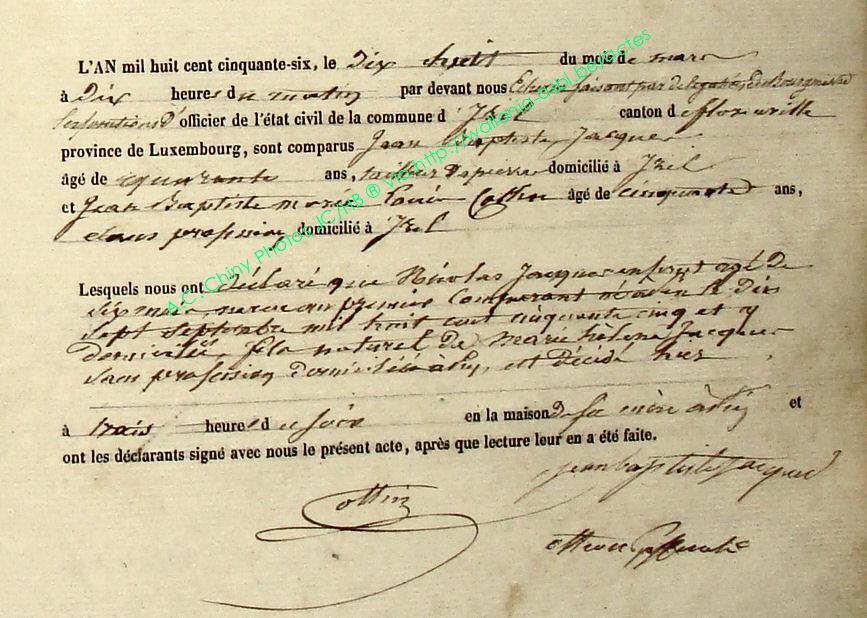 L'AN mil huit cent cinquante-six, le dix huit du mois de mars
à dix heures du matin par devant nous Echevin faisant par délégation du Bourgmestre
les fonctions d'officier de l'état civil de la commune d'Izel canton de Florenville
province de Luxembourg, sont comparus Jean Baptiste Jacques
âgé de quarante ans, tailleur de pierre domicilié à Izel
et Jean Baptiste marie Louis Collin âgé de cinquante ans,
sans profession domicilié à Izel
Lesquels nous ont déclaré que Nicolas Jacques enfant agé de
six mois, neveu au premier Comparant né à le dix
sept septembre mil huit cent cinquante cinq et y
domicilié, fils naturel de Marie hélène Jacques
sans profession domiciliée à est décédé hier
à trois heures du soir en la maison de sa mère à et
ont les déclarants signé avec nous le présent acte, après que lecture leur en a été faite.
jean baptiste jacques
A.C. Chiny Photos JC/RB ® via http://wallonia-asbl.be/actes